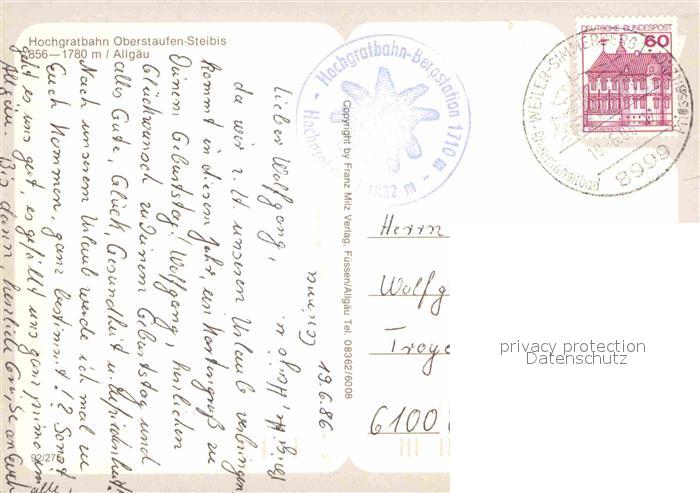 Hochgratbahn Oberstaufen-Steibis
856–1780 m / Allgäu
Hochgratbahn-Bergstation 1710 m
1832 m
DEUTSCHE BUNDESPOST
60
WEILER-SIMMERBERG
8999
Copyright by Franz Milz Verlag, Füssen/Allgäu Tel. 08362/6008
19.6.86
Lieber Wolfgang,
da wir z.Zt. unseren Urlaub verbringen,
kommt in diesem Jahr, ein Kartengruß zu
Deinem Geburtstag! Wolfgang, herzlichen
Glückwunsch zu Deinem Geburtstag und
alles Gute, Glück, Gesundheit u. Zufriedenheit!
Nach unserem Urlaub werde ich mal zu
Euch kommen, ganz bestimmt!? Sonst
geht es uns gut, es gefällt uns ganz prima im
Allgäu. Bis dann, herzliche Grüße an Euch
alle
Herrn
Wolfg
Troge
6100
92/275
privacy protection
Datenschutz